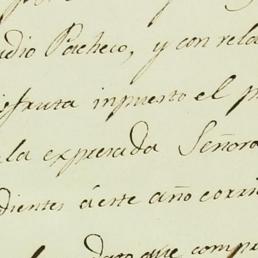 udio Pacheco, y con rela
isfruta inpuesto el p
la expresada Señora
dientes á este año corri
dato que compre